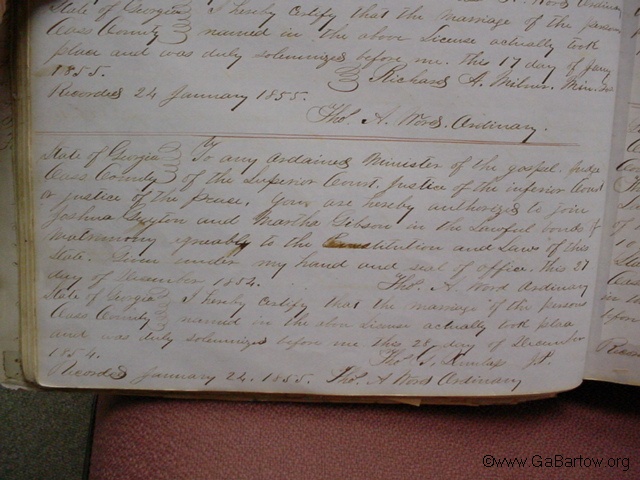 State of Georgia I hereby certify that the marriage of the persons
Cass County named in the above License actually took
place and was duly solemnized before me this 17 day of Jany
1855. Richard A. Milner. Min.
Recorded 24 January 1855.
Tho. A. Word. Ordinary.
State of Georgia To any ordained Minister of the gospel, judge
Cass County of the Superior Court, Justice of the inferior Court
or justice of the Peace, You are hereby authorized to join
Joshua Guyton and Martha Gibson in the Lawful bonds of
matrimony agreably to the Constitution and Laws of this
State. Given under my hand and seal of office. this 27
day of December 1854. Tho. A Word Ordinary
State of Georgia I hereby certify that the marriage of the persons
Cass County named in the abov License actually took place
and was duly solemnized before me this 28 day of December
1854. Tho. Dunlap J.P.
Recorded January 24. 1855. Tho. A Word Ordinary
©www.GaBartow.org